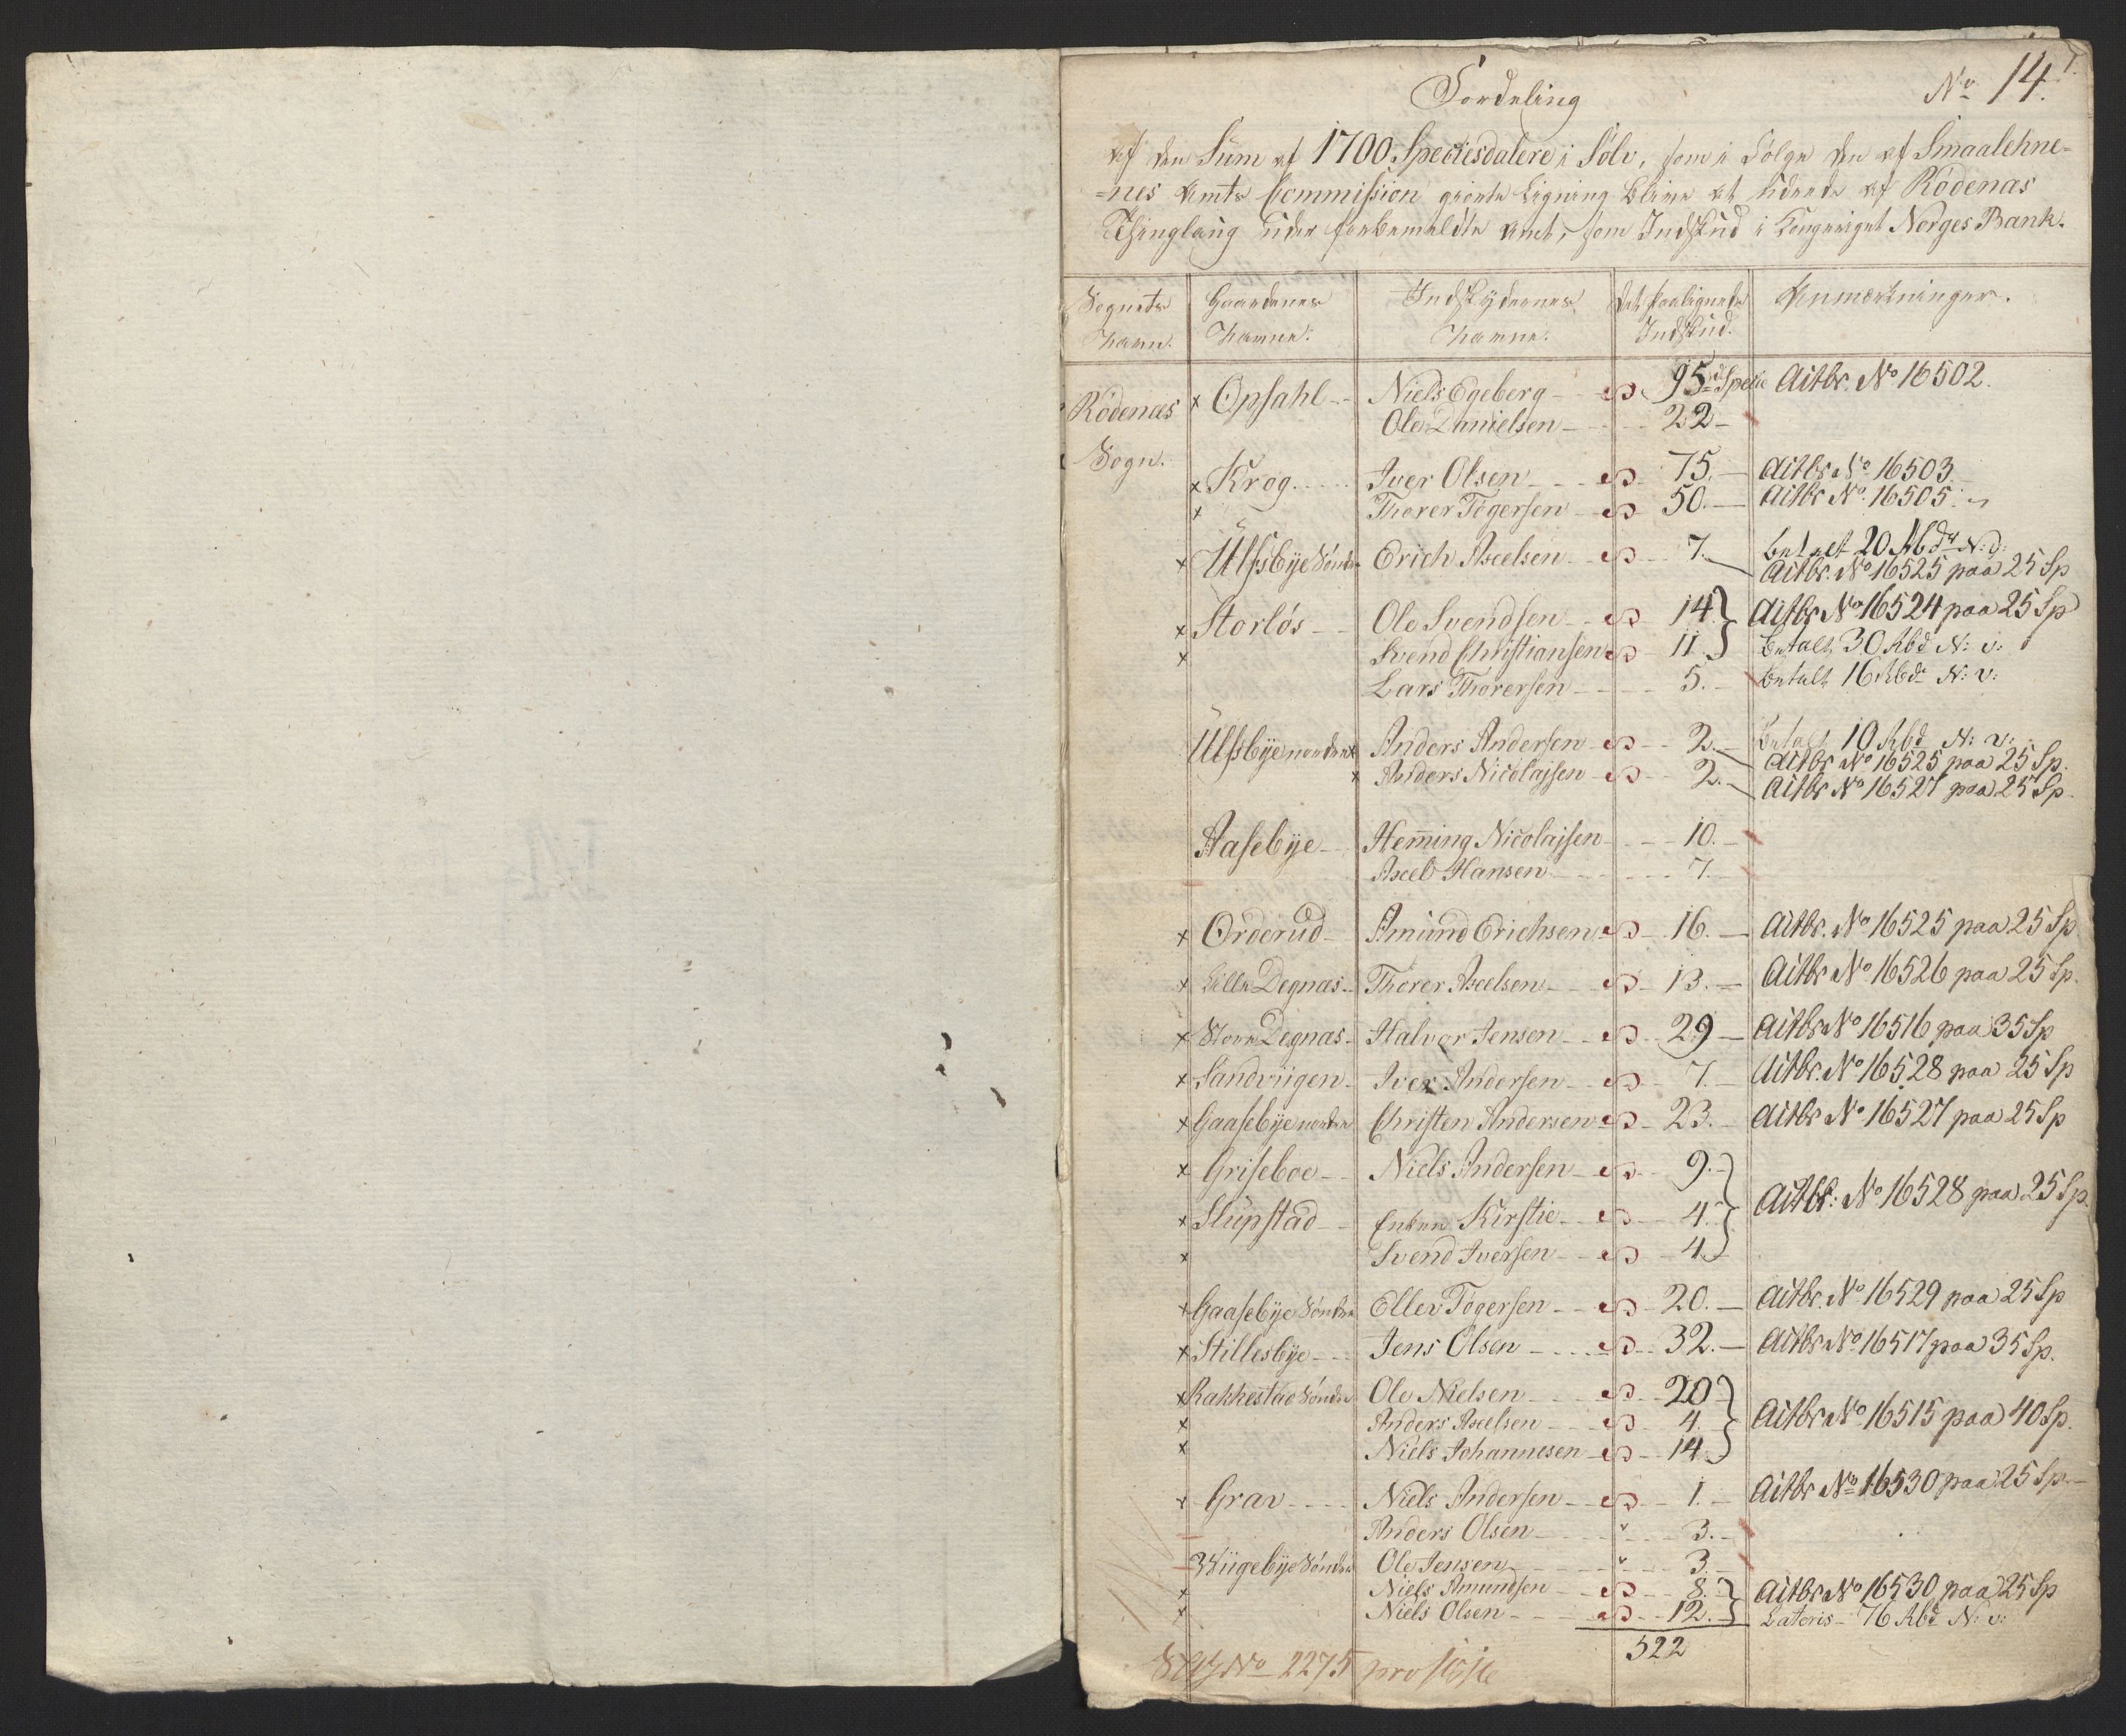 No 14.
Fordeling
af den Sum af 1700 Speciesdalere i Sölv, som i Fölge den af Smaalehne-
=nes Amts Commission giorte Ligning bliver at udrede af Rödenas
Thinglaug under forbemeldte Amt, som Indskud i Kongeriget Norges Bank.
Sognets Navn. Gaardenes Navne. Indskydernes Navne. Det paalignede Indskud. Anmærkninger.
Rödenas Sogn.
x Opsahl Niels Egeberg 95 Specie Actbr. No 16502.
Ole Danielsen 22
x Krog Iver Olsen 75. Actbr No 16503
x Thorer Tögersen 50. Actbr No 16505
x Ulfsbye Söndre Erich Axelsen 7. betalt 20 Rbd N: v:
Actbr. No 16525 paa 25 Sp
x Storlös Ole Svendsen 14 Actbr No 16524 paa 25 Sp
x Svend Christiansen 11 betalt 30 Rbd N: v:
Lars Thorersen 5. betalt 16 Rbd N: v:
Ulfsbye nordre x Anders Andersen 2. betalt 10 Rbd N: v:
Actbr No 16525 paa 25 Sp.
x Anders Nicolajsen 2. Actbr No 16527 paa 25 Sp.
Aasebye Heming Nicolajsen 10.
Axel Hansen 7.
x Orderud Amund Erichsen 16. Actbr. No 16525 paa 25 Sp
x Lille Degnas Thorer Axelsen 13. Actbr No 16526 paa 25 Sp.
x Store Degnas Halvor Jensen 29 Actbr No 16516 paa 35 Sp
x Sandviigen Iver Andersen 7. Actbr. No 16528 paa 25 Sp
x Gaasebye nordre Christen Andersen 23. Actbr No 16527 paa 25 Sp
x Griseboe Niels Andersen 9.
Actbr: No 16528 paa 25 Sp.
x Slupstad Enken Kirstie 4.
x Svend Iversen 4.
x Gaasebye Söndre Ellev Tögersen 20. Actbr. No 16529 paa 25 Sp
x Stillesbye Jens Olsen 32. Actbr No 16517 paa 35 Sp.
x Rakkestad Söndre Ole Nielsen 20
x Anders Axelsen 4. Actbr No 16515 paa 40 Sp.
x Niels Johannesen 14.
x Grav Niels Andersen 1. Actbr No 16530 paa 25 Sp.
Anders Olsen " 3.
Wiigebye Söndre Ole Jensen " 3.
x Niels Amundsen 8. Actbr No 16530 paa 25 Sp
x Niels Olsen 12. Lateris 76 Rbd N: v:
522
No 2275